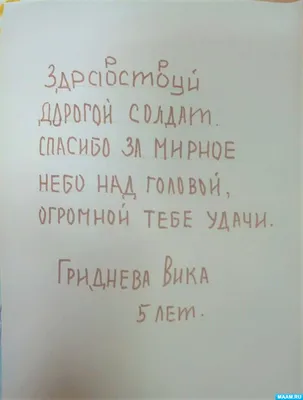 Здравствуй
дорогой солдат.
Спасибо за мирное
небо над головой,
огромной тебе удачи.
Гриднева Вика
5 лет.
MAAM.RU